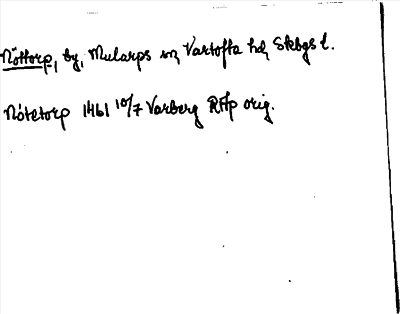 Nöttorp, by, Mularps sn, Vartofta hd, Skbgs l.
Nötetorp 1461 10/7 Varberg RAp orig.